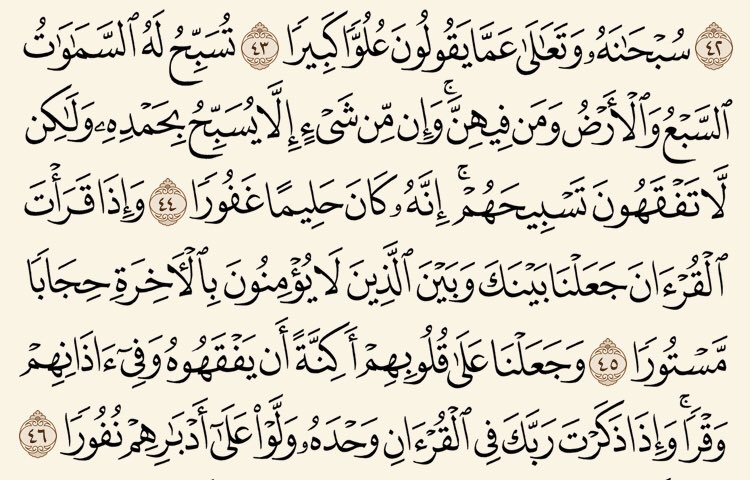 ٤٢ سُبْحَٰنَهُۥ وَتَعَٰلَىٰ عَمَّا يَقُولُونَ عُلُوًّا كَبِيرًا ٤٣ تُسَبِّحُ لَهُ ٱلسَّمَٰوَٰتُ
ٱلسَّبْعُ وَٱلْأَرْضُ وَمَن فِيهِنَّ ۚ وَإِن مِّن شَىْءٍ إِلَّا يُسَبِّحُ بِحَمْدِهِۦ وَلَٰكِن
لَّا تَفْقَهُونَ تَسْبِيحَهُمْ ۚ إِنَّهُۥ كَانَ حَلِيمًا غَفُورًا ٤٤ وَإِذَا قَرَأْتَ
ٱلْقُرْءَانَ جَعَلْنَا بَيْنَكَ وَبَيْنَ ٱلَّذِينَ لَا يُؤْمِنُونَ بِٱلْأَخِرَةِ حِجَابًا
مَّسْتُورًا ٤٥ وَجَعَلْنَا عَلَىٰ قُلُوبِهِمْ أَكِنَّةً أَن يَفْقَهُوهُ وَفِىٓ ءَاذَانِهِمْ
وَقْرًا ۚ وَإِذَا ذَكَرْتَ رَبَّكَ فِى ٱلْقُرْءَانِ وَحْدَهُۥ وَلَّوْا۟ عَلَىٰٓ أَدْبَٰرِهِمْ نُفُورًا ٤٦